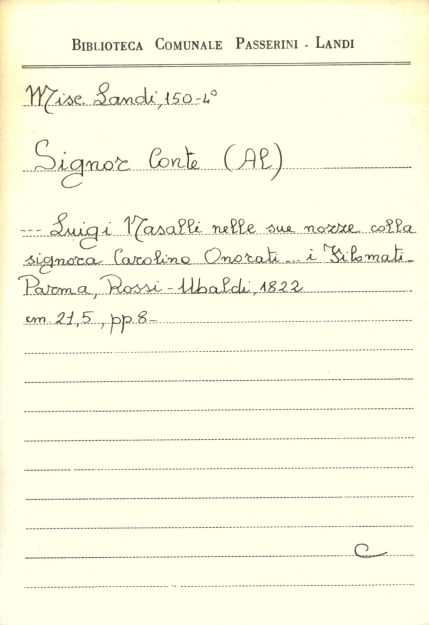 BIBLIOTECA COMUNALE PASSERINI - LANDI
Misc. Landi, 150-4°
Signor Conte (Al)
--- Luigi Nasalli nelle sue nozze colla
signora Carolina Onorati... i Filomati-
Parma, Rossi-Ubaldi, 1822
cm 21,5, pp. 8-
C